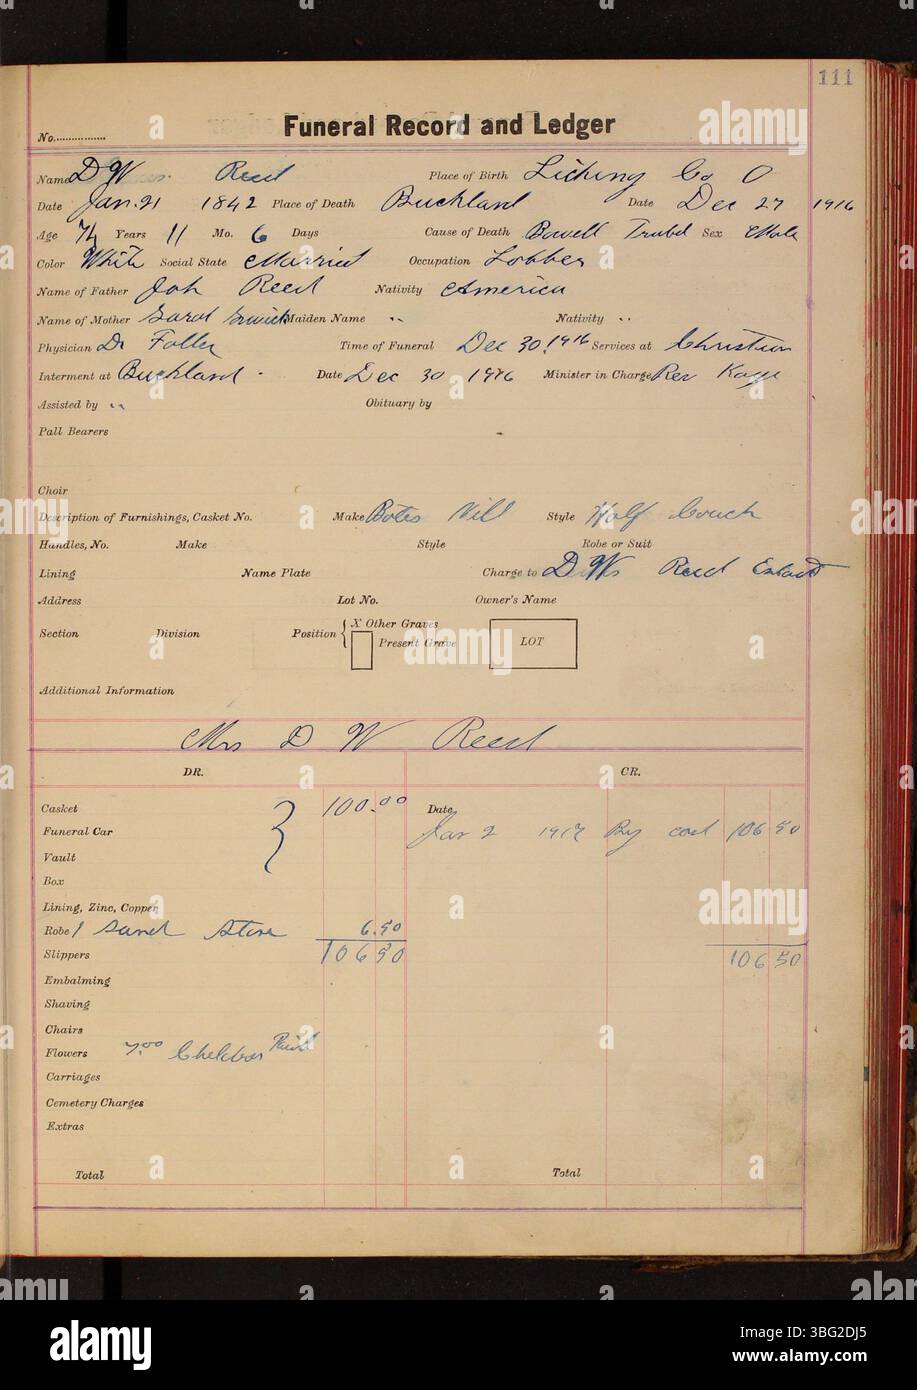 111
Funeral Record and Ledger
No.
Name D W Reed Place of Birth Licking Co O
Date Jan. 21 1842 Place of Death Buckland Date Dec 27 1916
Age 74 Years 11 Mo. 6 Days Cause of Death Bowell Trubel Sex Male
Color White Social State Married Occupation
Name of Father Joh Reed Nativity America
Name of Mother Maiden Name " Nativity "
Physician Dr Time of Funeral Dec 30, 1916 Services at Christian
Interment at Buckland Date Dec 30 1916 Minister in Charge Rev
Assisted by " Obituary by
Pall Bearers
Choir
Description of Furnishings, Casket No. Make Style Half Couch
Handles, No. Make Style Robe or Suit
Lining Name Plate Charge to D W Reed
Address Lot No. Owner's Name
Section Division Position { X Other Graves
Present Grave LOT
Additional Information
Mrs D W Reed
DR. CR.
Casket 100.00 Date
Funeral Car Jan 2 1917 By 106 50
Vault
Box
Lining, Zinc, Copper
Robe 1 6.50
Slippers 106 50 106 50
Embalming
Shaving
Chairs
Flowers 7.00
Carriages
Cemetery Charges
Extras
Total Total
alamy
Image ID: 3BG2DJ5
www.alamy.com